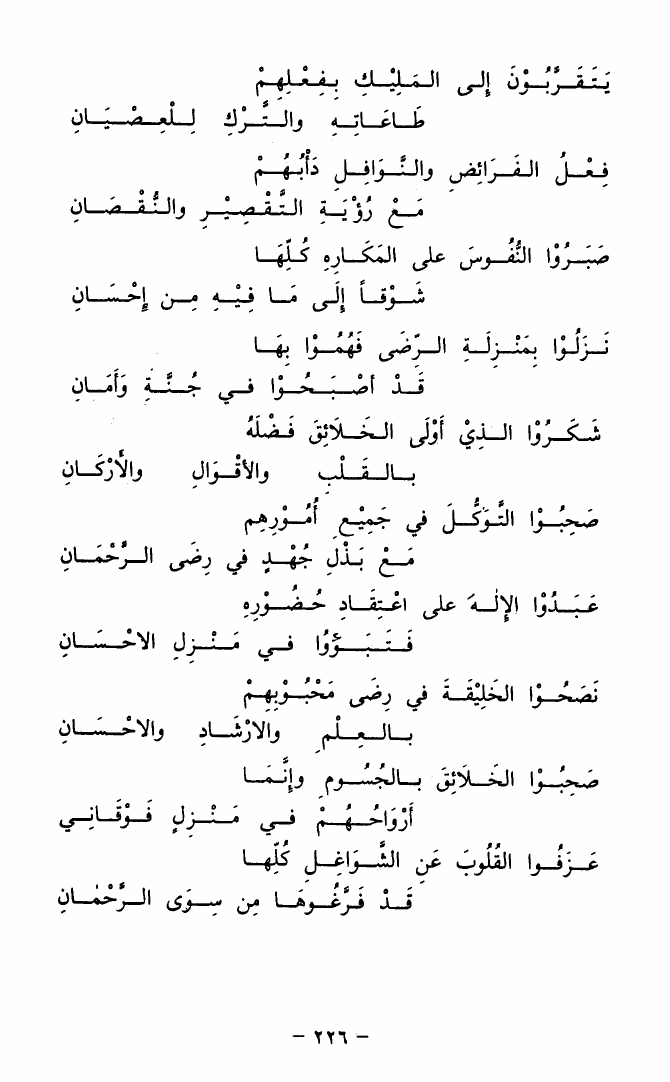 يَتَقَرَّبُوْنَ إِلى المَلِيْكِ بِفِعْلِهِمْ
طَاعَاتِهِ والتَّرْكِ لِلْعِصْيَانِ
فِعْلُ الفَرَائِضِ والنَّوَافِلِ دَأْبُهُمْ
مَعْ رُؤْيَةِ التَّقْصِيْرِ والنُّقْصَانِ
صَبَرُوْا النُّفُوْسَ على المَكَارِهِ كُلِّهَا
شَوْقاً إِلَى مَا فِيْهِ مِن إِحْسَانِ
نَزَلُوْا بِمَنْزِلَةِ الرِّضَى فَهُمُوْا بِهَا
قَدْ أَصْبَحُوْا في جُنَّةٍ وَأَمَانِ
شَكَرُوْا الذِيْ أَوْلَى الخَلَائِقَ فَضْلَهُ
بالقَلْبِ والأقْوَالِ والأَرْكَانِ
صَحِبُوْا التَّوَكُّلَ في جَمِيْعِ أُمُوْرِهِم
مَعْ بَذْلِ جُهْدٍ في رِضَى الرَّحْمَانِ
عَبَدُوْا الإِلٰهَ على اعْتِقَادِ حُضُوْرِهِ
فَتَبَوَّؤُوا في مَنْزِلِ الاحْسَانِ
نَصَحُوْا الخَلِيْقَةَ في رِضَى مَحْبُوْبِهِمْ
بالعِلْمِ والارْشَادِ والاحْسَانِ
صَحِبُوْا الخَلَائِقَ بالجُسُومِ وإِنَّمَا
أَرْوَاحُهُمْ في مَنْزِلٍ فَوْقَانِي
عَزَفُوا القُلُوبَ عَنِ الشَّوَاغِلِ كُلِّهَا
قَدْ فَرَّغُوهَا مِن سِوَى الرَّحْمَانِ
- ٢٢٦ -